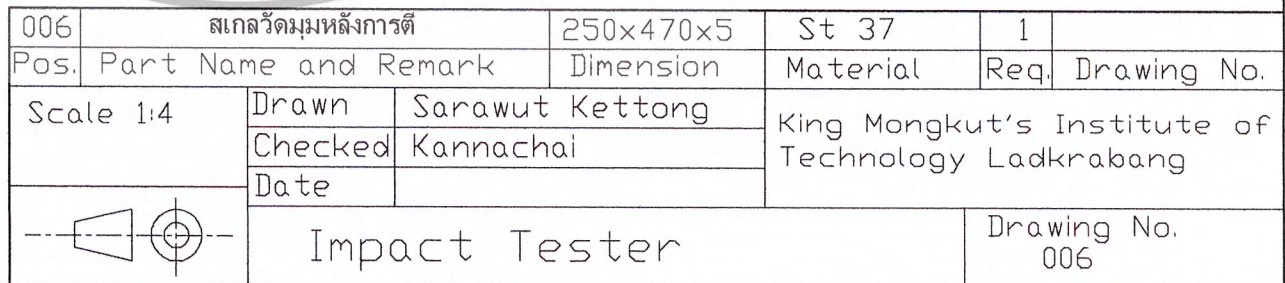 006 สเกลวัดมุมหลังการตี 250x470x5 St 37 1
Pos. Part Name and Remark Dimension Material Req. Drawing No.
Scale 1:4
Drawn Sarawut Kettong
Checked Kannachai
Date
King Mongkut's Institute of
Technology Ladkrabang
Impact Tester
Drawing No.
006